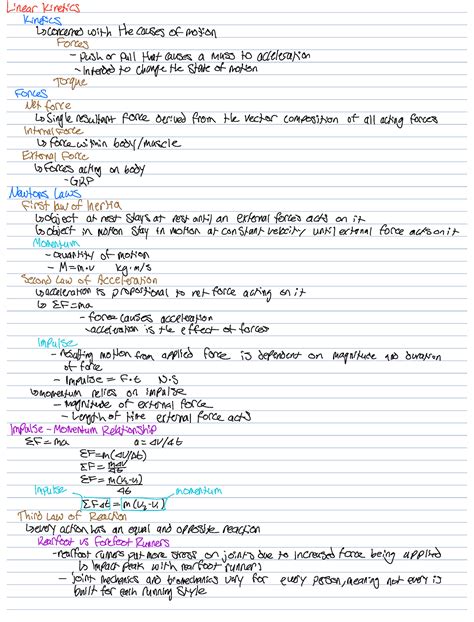 Linear Kinetics
Kinetics
↳ concerned with the causes of motion
Forces
- Push or Pull that causes a mass to acceleration
- Intended to change the state of motion
Torque
Forces
Net force
↳ Single resultant force derived from the vector composition of all acting forces
Internal Force
↳ force within body/muscle
External Force
↳ Forces acting on body
- GRP
Newtons Laws
First law of Inertia
↳ object at rest stays at rest until an external forces acts on it
↳ object in motion stay in motion at constant velocity until external force acts on it
Momentum
- Quantity of motion
- M = m·v kg·m/s
Second Law of Acceleration
↳ acceleration is proportional to net force acting on it
↳ ΣF = ma
- force causes acceleration
- acceleration is the effect of forces
Impulse
- resulting motion from applied force is dependent on magnitude and duration
of force
- Impulse = F·t N·S
↳ momentum relies on impulse
- Magnitude of external force
- Length of time external force acts
Impulse - Momentum Relationship
ΣF = ma a = ΔV/Δt
ΣF = m(ΔV/Δt)
ΣF = mΔV/Δt
ΣF = m(V₂-V₁)/Δt
Impulse momentum
ΣFΔt = m(V₂-V₁)
Third Law of Reaction
↳ every action has an equal and opposite reaction
Rearfoot vs Forefoot Runners
- rearfoot runners put more stress on joints due to increased force being applied
↳ Impact peak with rearfoot runners
- joint mechanics and biomechanics vary for every person, meaning not every is
built for each running style